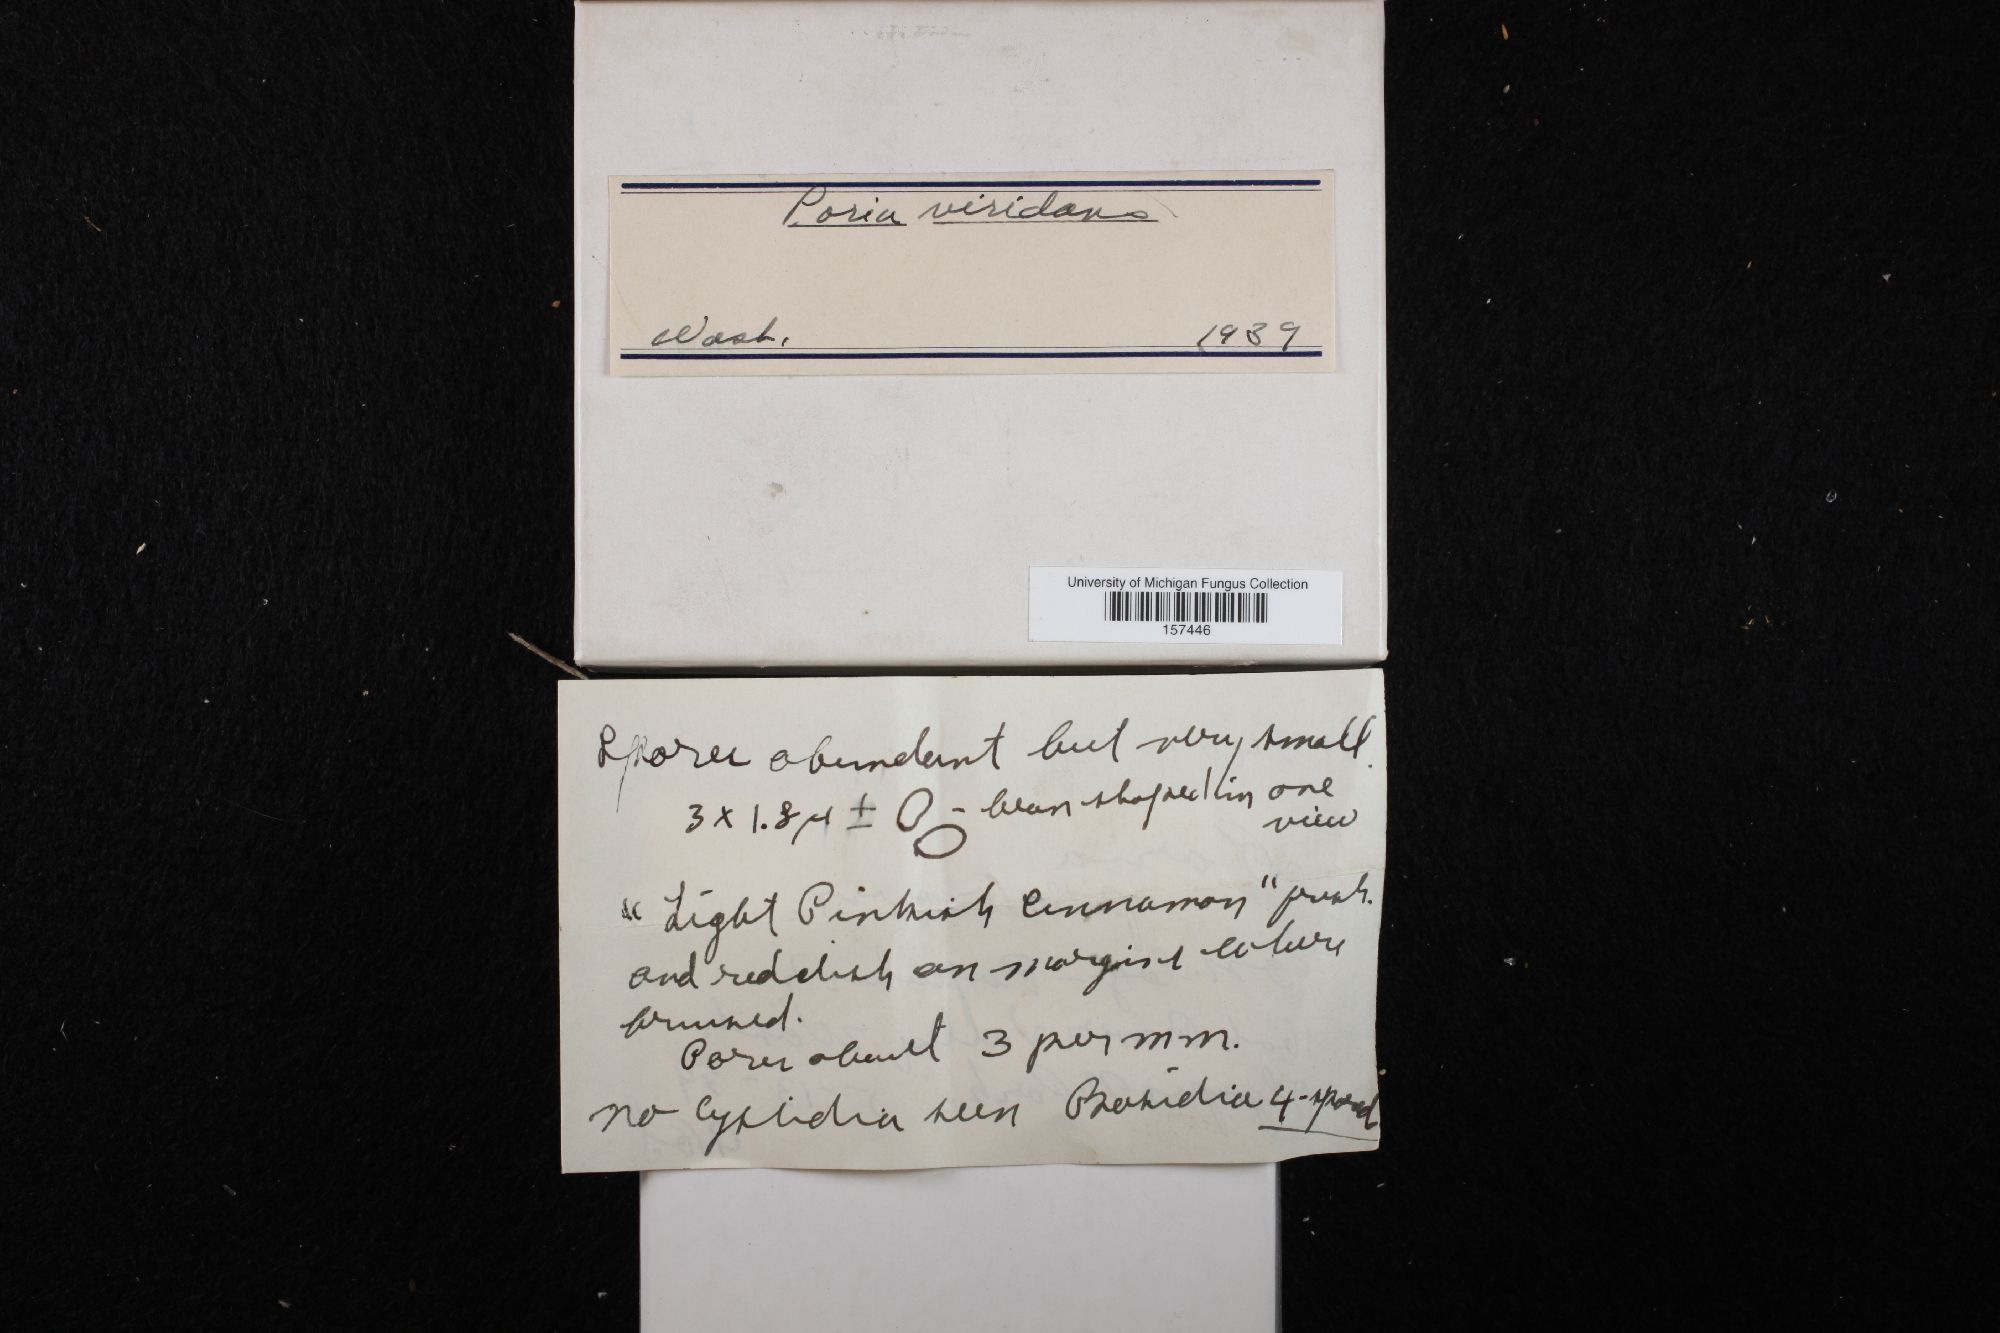 Poria viridans
Wash. 1939
University of Michigan Fungus Collection
157446
Spores abundant but very small.
3 x 1.8 µ ± - bean shaped in one
view
"Light Pinkish Cinnamon" fresh.
and reddish on margin where
bruised.
Pores about 3 per mm.
no cystidia seen Basidia 4-spored